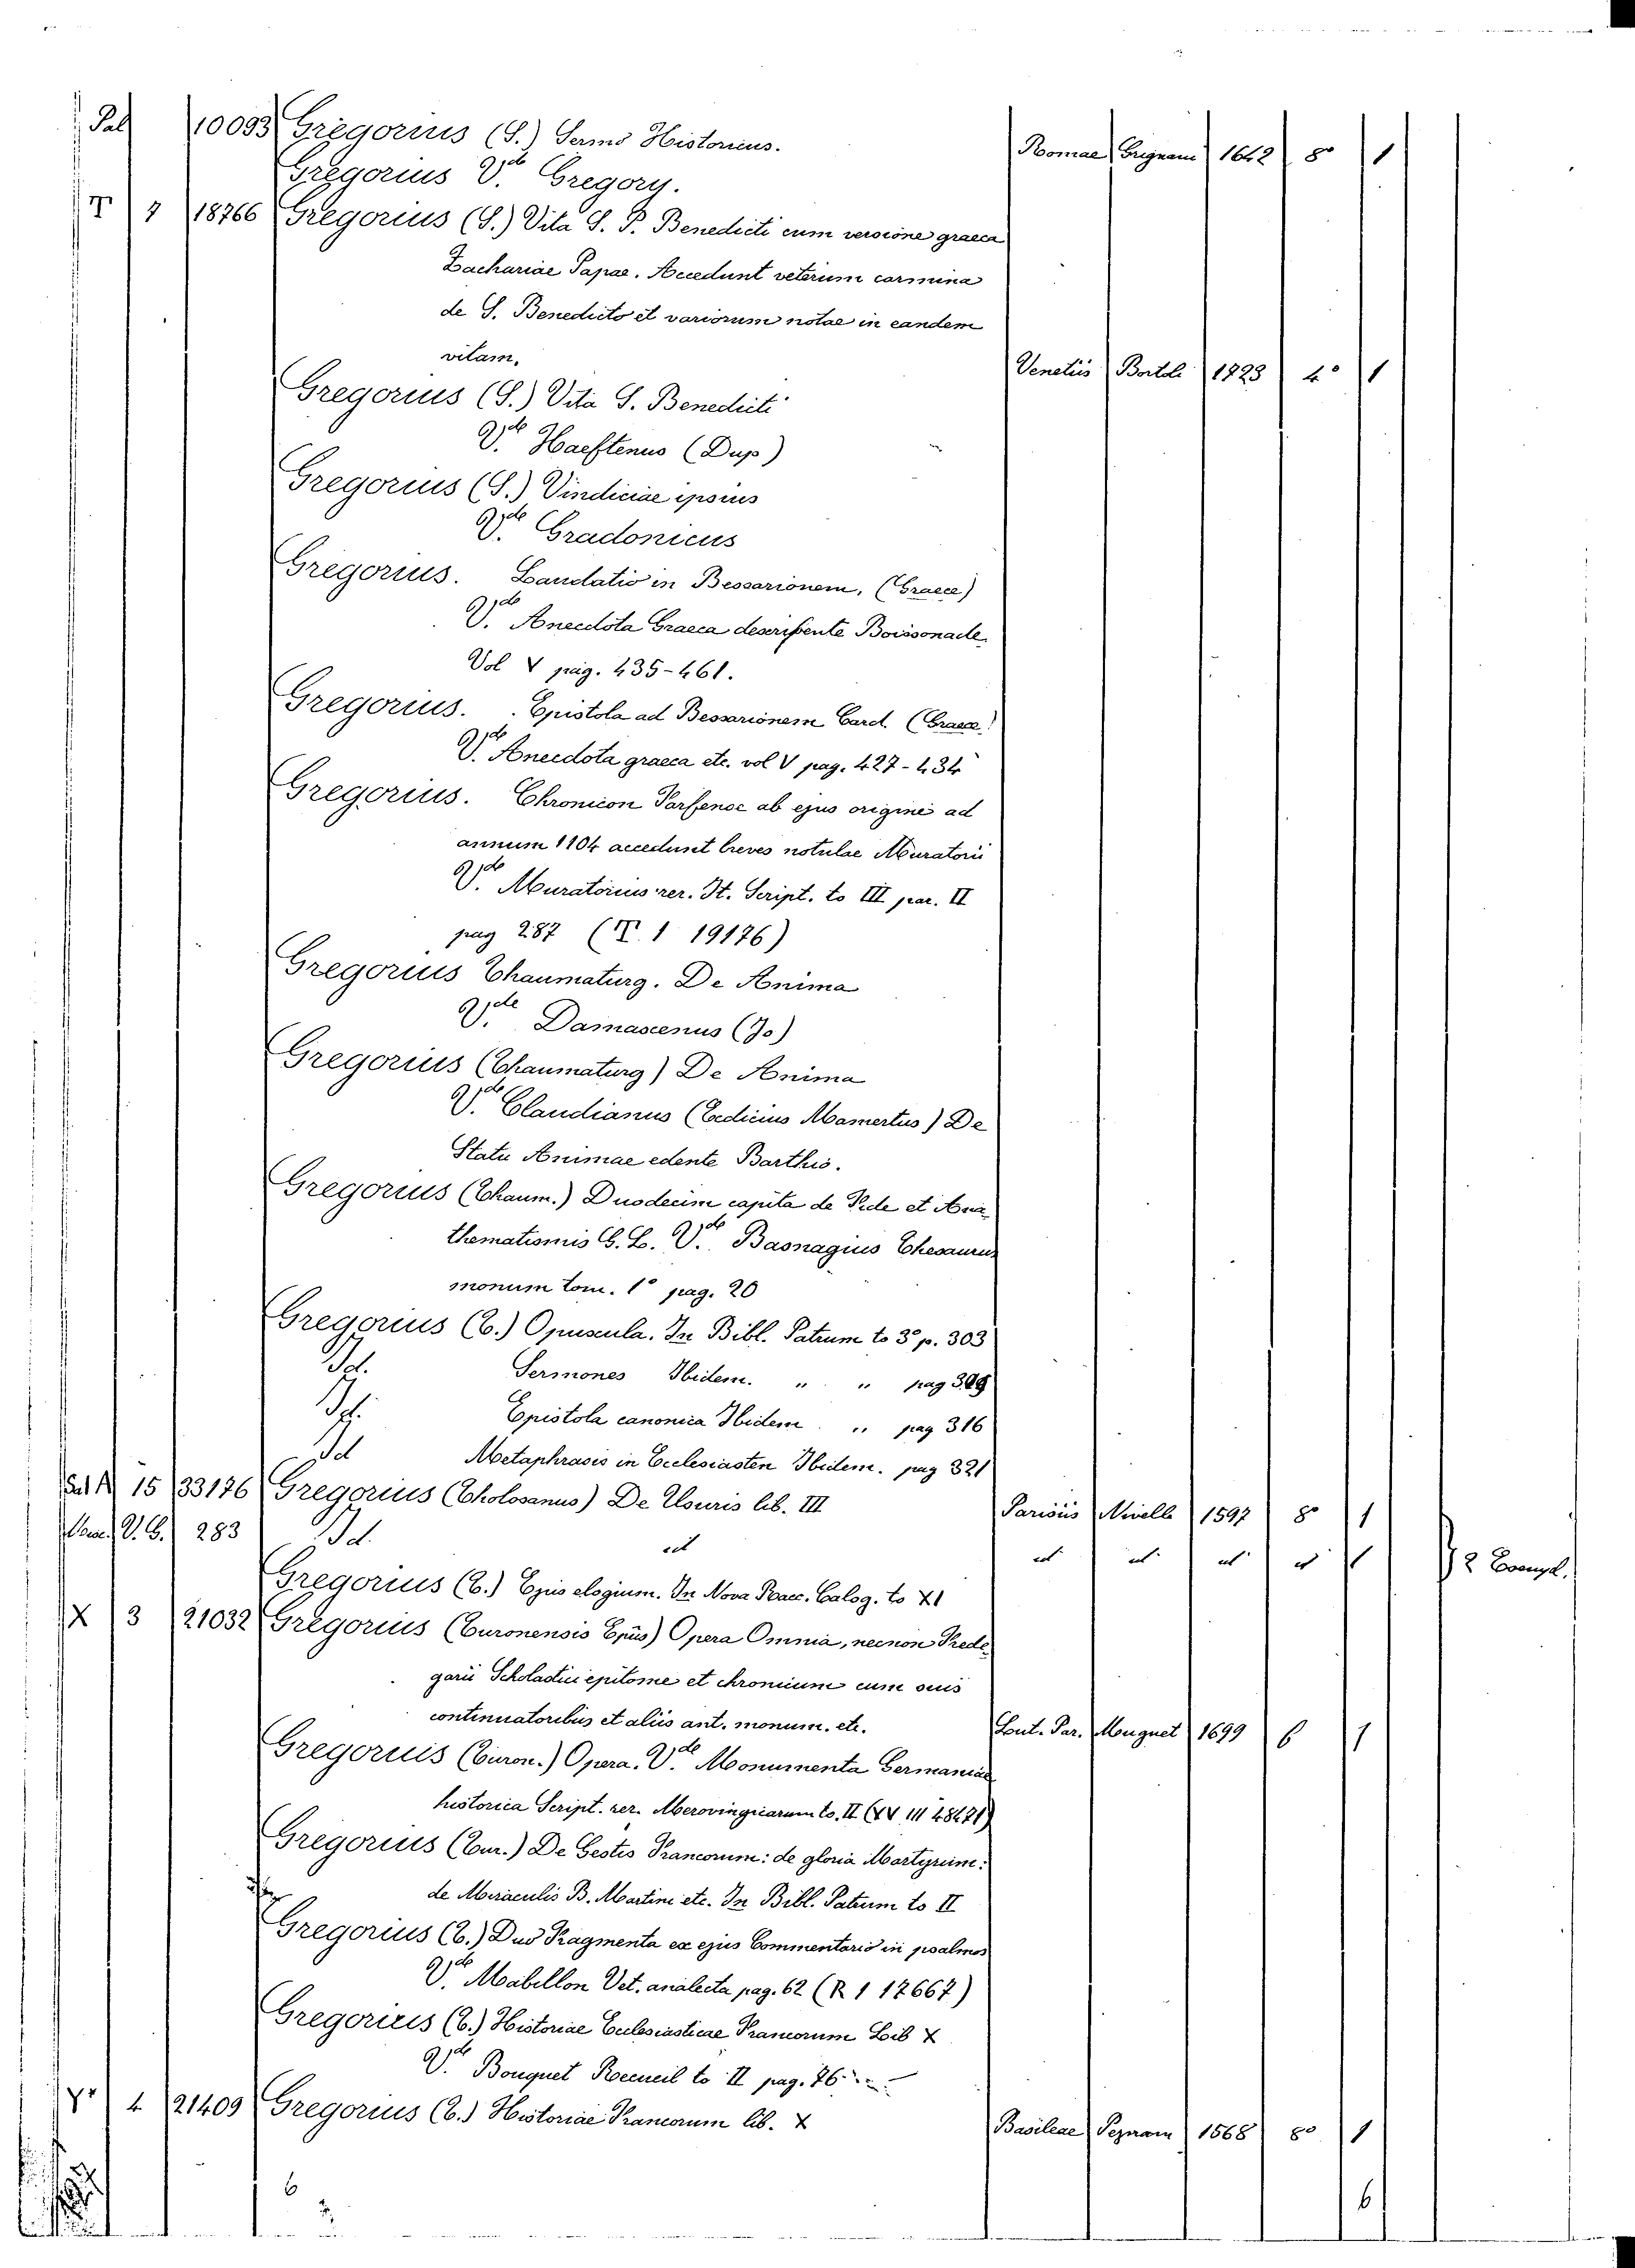 Pal 10093 Gregorius (S.) Sermo Historicus. Romae Grignani 1642 8° 1
Gregorius V.de Gregory.
T 7 18766 Gregorius (S.) Vita S. P. Benedicti cum versione graeca
Zachariae Papae. Accedunt veterum carmina
de S. Benedicto et variorum notae in eandem
vitam. Venetiis Bortoli 1723 4° 1
Gregorius (S.) Vita S. Benedicti
V.de Haeftenus (Dup)
Gregorius (S.) Vindiciae ipsius
V.de Gradonicus
Gregorius. Laudatio in Bessarionem, (Graece)
V.de Anecdota Graeca descripente Boissonade
Vol V pag. 435-461.
Gregorius. Epistola ad Bessarionem Card. (Graece)
V.de Anecdota graeca etc. vol V pag. 427-434
Gregorius. Chronicon Farfense ab ejus origine ad
annum 1104 accedunt breves notulae Muratorii
V.de Muratorius rer. It. Script. to III par. II
pag 287 (T. 1 19176)
Gregorius Thaumaturg. De Anima
V.de Damascenus (Jo)
Gregorius (Thaumaturg) De Anima
V.de Claudianus (Ecdicius Mamertus) De
Statu Animae edente Barthio.
Gregorius (Thaum.) Duodecim capita de Fide et Ana
thematismis G. L. V.de Basnagius Thesaurus
monum tom. 1° pag. 20
Gregorius (T.) Opuscula. In Bibl. Patrum to 3° p. 303
Id. Sermones Ibidem. " " pag 309
Id. Epistola canonica Ibidem " pag 316
Id Metaphrasis in Ecclesiasten Ibidem. pag 321
15 33176 Gregorius (Tholosanus) De Usuris lib. III Parisiis Nivelle 1597 8° 1
V. G. 283 Id. id id id id id 1 2 Exempl.
Gregorius (T.) Ejus elogium. In Nova Racc. Calog. to XI
X 3 21032 Gregorius (Turonensis Epus) Opera Omnia, necnon Frede
garii Scholastici epitome et chronicum cum suis
continuatoribus et aliis ant. monum. etc. Lut. Par. Muguet 1699 6 1
Gregorius (Turon.) Opera. V.de Monumenta Germaniae
historica Script. rer. Merovingicarum to. II (XV III 48471)
Gregorius (Tur.) De Gestis Francorum: de gloria Martyrum:
de Miraculis B. Martini etc. In Bibl. Patrum to II
Gregorius (T.) Duo Fragmenta ex ejus Commentario in psalmos
V.de Mabillon Vet. analecta pag. 62 (R 1 17667)
Gregorius (T.) Historiae Ecclesiasticae Francorum Lib X
V.de Bouquet Recueil to II pag. 76
4 21409 Gregorius (T.) Historiae Francorum lib. X Basileae Pernam 1568 8° 1
6 6